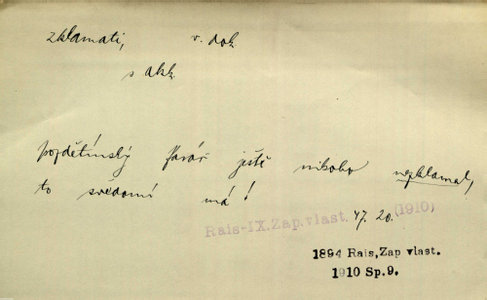 zklamati, v. dok.
s akk.
pozdětínský farář ještě nikoho nezklamal,
to svědomí má!
Rais-IX.Zap.vlast. 47. 20. (1910)
1894 Rais, Zap vlast.
1910 Sp.9.